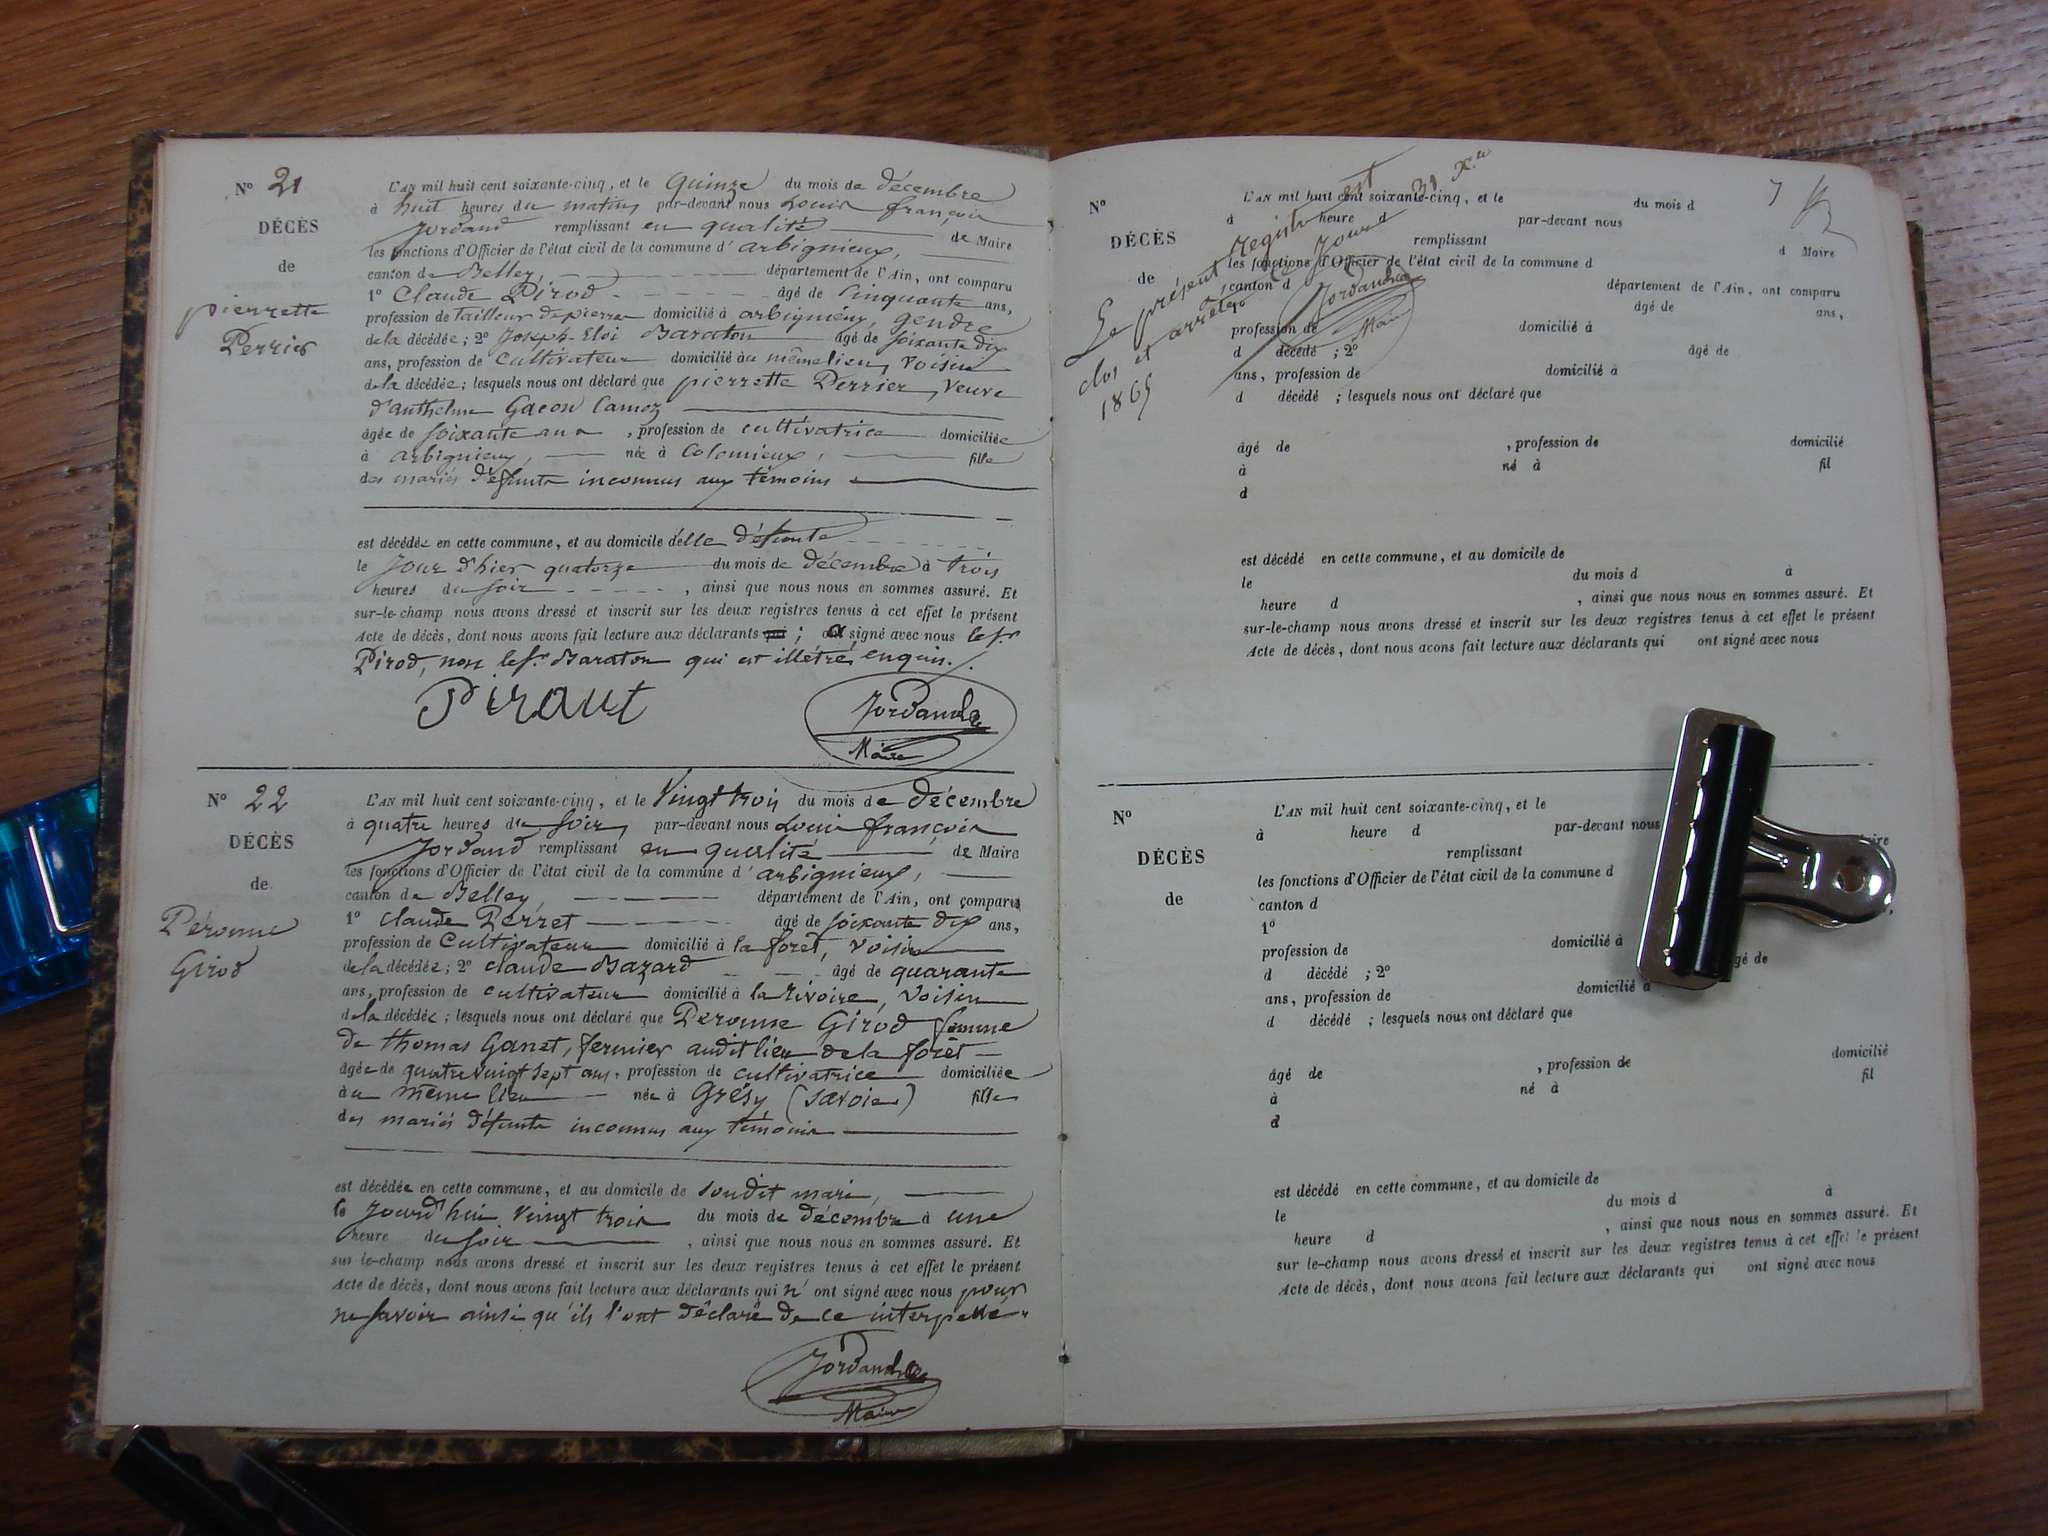 N° 21
DÉCÈS
de
pierrette
Perrier
L'AN mil huit cent soixante-cinq, et le quinze du mois de décembre
à huit heures du matin, par-devant nous Louis françois
Jordand remplissant en qualité de Maire
les fonctions d'Officier de l'état civil de la commune d'arbignieux,
canton de Belley, département de l'Ain, ont comparu
1° Claude Pirod âgé de cinquante ans,
profession de tailleur de pierre domicilié à arbignieux, gendre
de la décédée; 2° Joseph-Eloi Baraton âgé de soixante dix
ans, profession de cultivateur domicilié au même lieu, voisin
de la décédée; lesquels nous ont déclaré que pierrette Perrier, veuve
d'anthelme Gacon Camoz
âgée de soixante ans, profession de cultivatrice domiciliée
à arbignieux, née à Colomieux, fille
des mariés défunts inconnus aux témoins
est décédée en cette commune, et au domicile d'elle défunte
le jour d'hier quatorze du mois de décembre à trois
heures du soir, ainsi que nous nous en sommes assuré. Et
sur-le-champ nous avons dressé et inscrit sur les deux registres tenus à cet effet le présent
Acte de décès, dont nous avons fait lecture aux déclarants; a signé avec nous le sr
Pirod, non le sr Baraton qui est illétré, enquis.
Piraut
Jordand
Maire
N° 22
DÉCÈS
de
Péronne
Girod
L'AN mil huit cent soixante-cinq, et le vingt trois du mois de décembre
à quatre heures du soir, par-devant nous Louis françois
Jordand remplissant en qualité de Maire
les fonctions d'Officier de l'état civil de la commune d'arbignieux,
canton de Belley, département de l'Ain, ont comparu
1° Claude Perret âgé de soixante dix ans,
profession de cultivateur domicilié à la forêt, voisin
de la décédée; 2° claude Bazard âgé de quarante
ans, profession de cultivateur domicilié à la rivoire, voisin
de la décédée; lesquels nous ont déclaré que Peronne Girod femme
de thomas Ganet, fermier audit lieu de la forêt
âgée de quatre vingt sept ans, profession de cultivatrice domiciliée
au même lieu née à Grésy (Savoie) fille
des mariés défunts inconnus aux témoins
est décédée en cette commune, et au domicile de sondit mari,
le jourd'hui vingt trois du mois de décembre à une
heure du soir, ainsi que nous nous en sommes assuré. Et
sur le-champ nous avons dressé et inscrit sur les deux registres tenus à cet effet le présent
Acte de décès, dont nous avons fait lecture aux déclarants qui n'ont signé avec nous pour
ne savoir ainsi qu'ils l'ont déclaré de ce interpellé
Jordand
Maire
Le présent registre est
clos et arrêté ce jour 31 Xre
1865
Jordand
Maire
7
N°
DÉCÈS
de
L'AN mil huit cent soixante-cinq, et le du mois d
à heure d par-devant nous
remplissant d Maire
les fonctions d'Officier de l'état civil de la commune d
canton d département de l'Ain, ont comparu
âgé de ans,
profession de domicilié à
d décédé ; 2° âgé de
ans, profession de domicilié à
d décédé ; lesquels nous ont déclaré que
âgé de , profession de domicilié
à né à fil
d
est décédé en cette commune, et au domicile de
le du mois d à
heure d , ainsi que nous nous en sommes assuré. Et
sur-le-champ nous avons dressé et inscrit sur les deux registres tenus à cet effet le présent
Acte de décès, dont nous avons fait lecture aux déclarants qui ont signé avec nous
N°
DÉCÈS
de
L'AN mil huit cent soixante-cinq, et le
à heure d par-devant nous
remplissant
les fonctions d'Officier de l'état civil de la commune d
canton d
1°
profession de domicilié à
d décédé ; 2° âgé de
ans, profession de domicilié à
d décédé ; lesquels nous ont déclaré que
âgé de , profession de domicilié
à né à fil
d
est décédé en cette commune, et au domicile de
le du mois d à
heure d , ainsi que nous nous en sommes assuré. Et
sur le-champ nous avons dressé et inscrit sur les deux registres tenus à cet effet le présent
Acte de décès, dont nous avons fait lecture aux déclarants qui ont signé avec nous